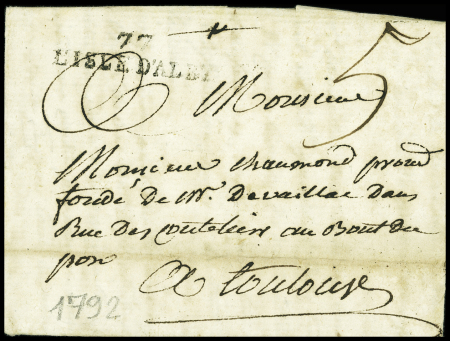 77
L'ISLE D'ALBY
5
Monsieur
Monsieur chaumond procu
fondé de Mr. Devaillac Dans
Rue Des couteliers au Bout du
pon
A toulouse
1792